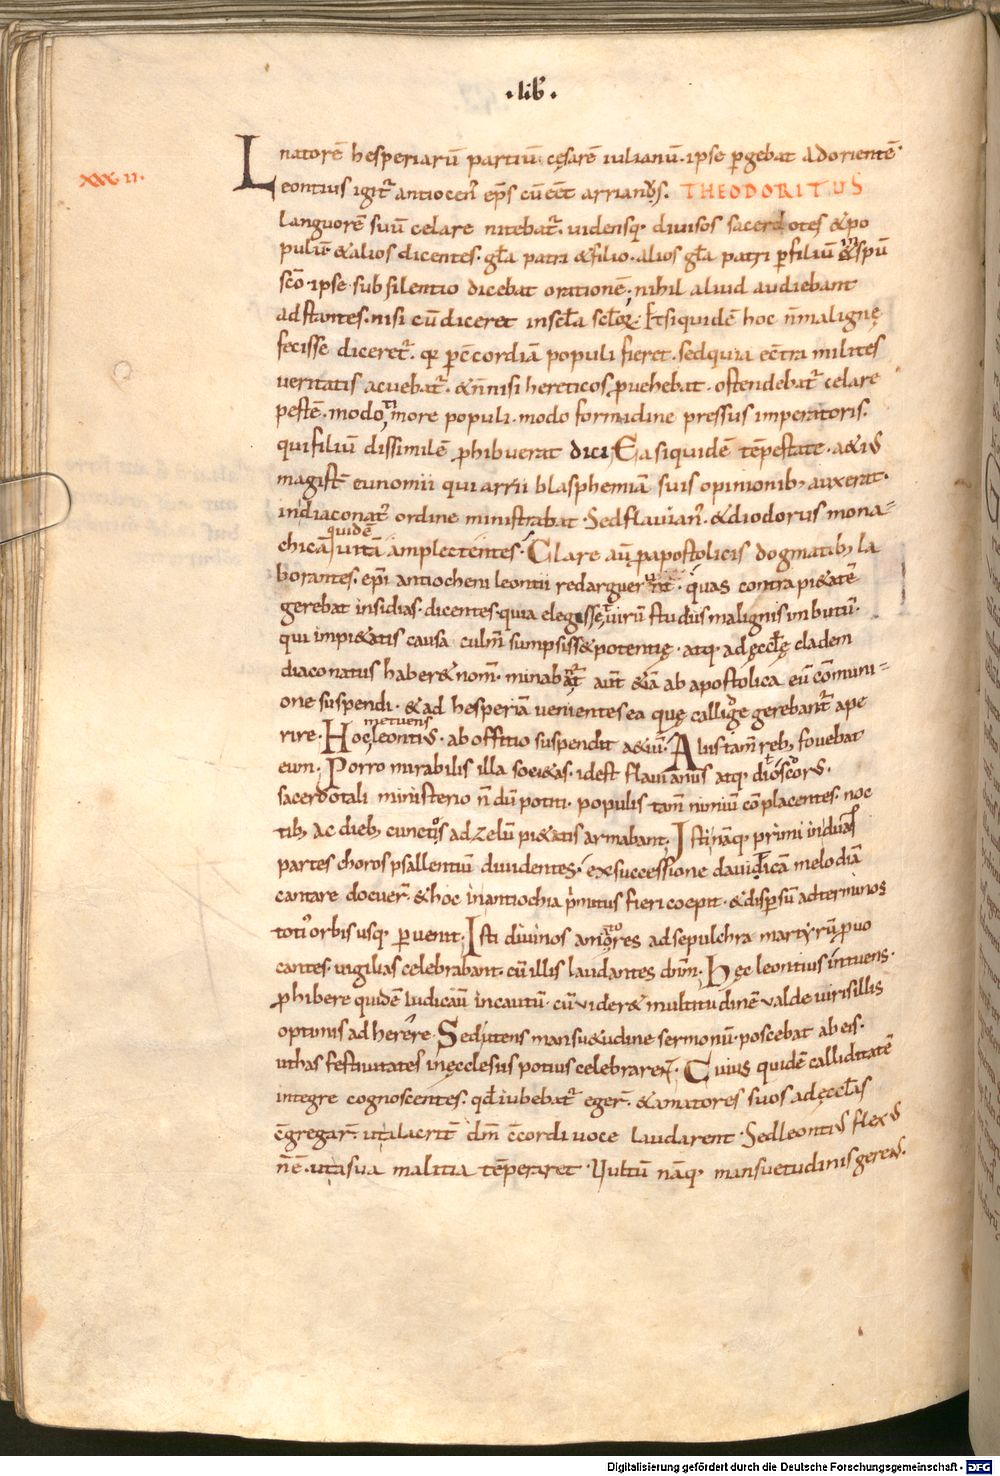 .lib̄.
natorē hesperiarū partiū. cęsarē iulianū. ipse ꝑgebat ad orientē.
XXXII.
Leontius igit̃ antiocen᾽ ep̄s cū eēt arrian᾽. THEODORITUS
languorē suū celare nitebat̃. uidensq; diuisos sacerdotes & po
pulū. & alios dicentes. gl̄a patri & filio. alios gl̄a patri ꝑ filiū & in sp̄u
sc̄o. ipse sub silentio dicebat orationē; nihil aliud audiebant
adstantes. nisi cū diceret in scl̄a scl̄oꝝ. Et siquidē hoc n̄ malignę
fecisse diceret̃. ꝑ c̄cordiā populi fieret. sed quia ec̄tra milites
ueritatis acuebat̃. & n̄ nisi hereticos ꝓuehebat. ostendebat̃ celare
pestē. modo timore populi. modo formidine pressus imperatoris.
qui filiū dissimilē ꝓhibuerat dici; Ea siquidē tēpestate. a&i᾽
magist̃ eunomii qui arrii blasphemiā suis opinionib; auxerat.
in diaconat᾽ ordine ministrabat. Sed flauian᾽. & diodorus mona=
chicā quidē uitā amplectentes. Clare aū ꝓ apostolicis dogmatib; la
borantes. ep̄i antiocheni leontii redarguerunt. quas contra pi&atē
gerebat insidias. dicentes. quia elegisset uirū studiis malignis imbutū.
qui impi&atis causa culm̄ sumpsiss& potentię. atq; ad ęccl̄ę cladem
diaconatus haber& nom̄. minabant̃ aūt &iā ab apostolica eū cōmuni=
one suspendi. & ad hesperiā uenientes ea quę callige gerebant̃ ape
rire. Hoc metuens leonti᾽. ab offitio suspendit a&iū. Aliis tam̄ reb; fouebat
eum. Porro mirabilis illa soci&as. id est flauianus atq; dioscor᾽.
sacerdotali ministerio n̄ dū potiti. populis tam̄ nimiū cōplacentes. noc
tib; ac dieb; cunctos ad zelū pi&atis armabant. Isti nāq; primi in duas
partes choros psallentiū diuidentes. ex successione dauidicā melodiā
cantare docuer̄. & hoc in antiochia p̄mitus fieri coepit. & dispersū ad terminos
toti᾽ orbis usq; ꝑuenit. Isti diuinos amatores ad sepulchra martyrū ꝓuo
cantes. uigilias celebrabant. cū illis laudantes dn̄m. Hęc leontius intuens.
ꝓhibere quidē iudicauit incautū. cū uider& multitudinē ualde uiris illis
optimis adherere. Sed utens mansu&udine sermonū. poscebat ab eis.
ut has festiuitates in ęcclesiis potius celebrarent. Cuius quidē calliditatē
integre cognoscentes. qd̄ iubebat̃ eger̄. & amatores suos ad ęccl̄as
c̄gregar̄. ut alacrit̃ dn̄m c̄cordi uoce laudarent. Sed leonti᾽ flex᾽
n̄ ē. ut a sua malitia tēperaret. Vultū nāq; mansuetudinis gerens.
Digitalisierung gefördert durch die Deutsche Forschungsgemeinschaft - DFG